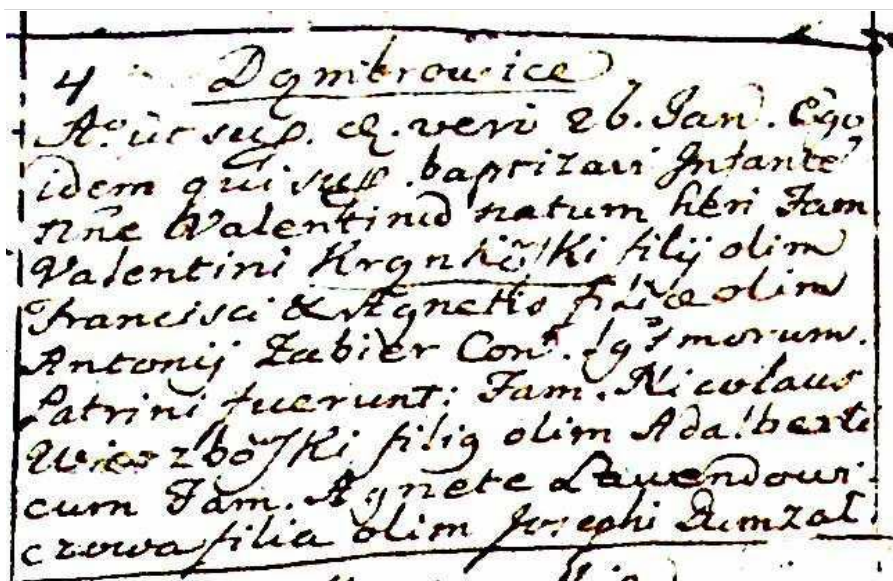 4 Dąmbrowice
Aº. ut sup. d. vero 26. Jan. Ego
idem qui sup. baptizavi Infante
nñe Valentinū natum heri Fam.
Valentini ski filij olim
Francisci & Agnetis filiæ olim
Antonij Zabier Con. lg morum.
Patrini fuerunt: Fam. Nicolaus
Wierzboſki filiq olim Adalberti
cum Fam. Agnete Lewendowi
czowa filia olim Josephi